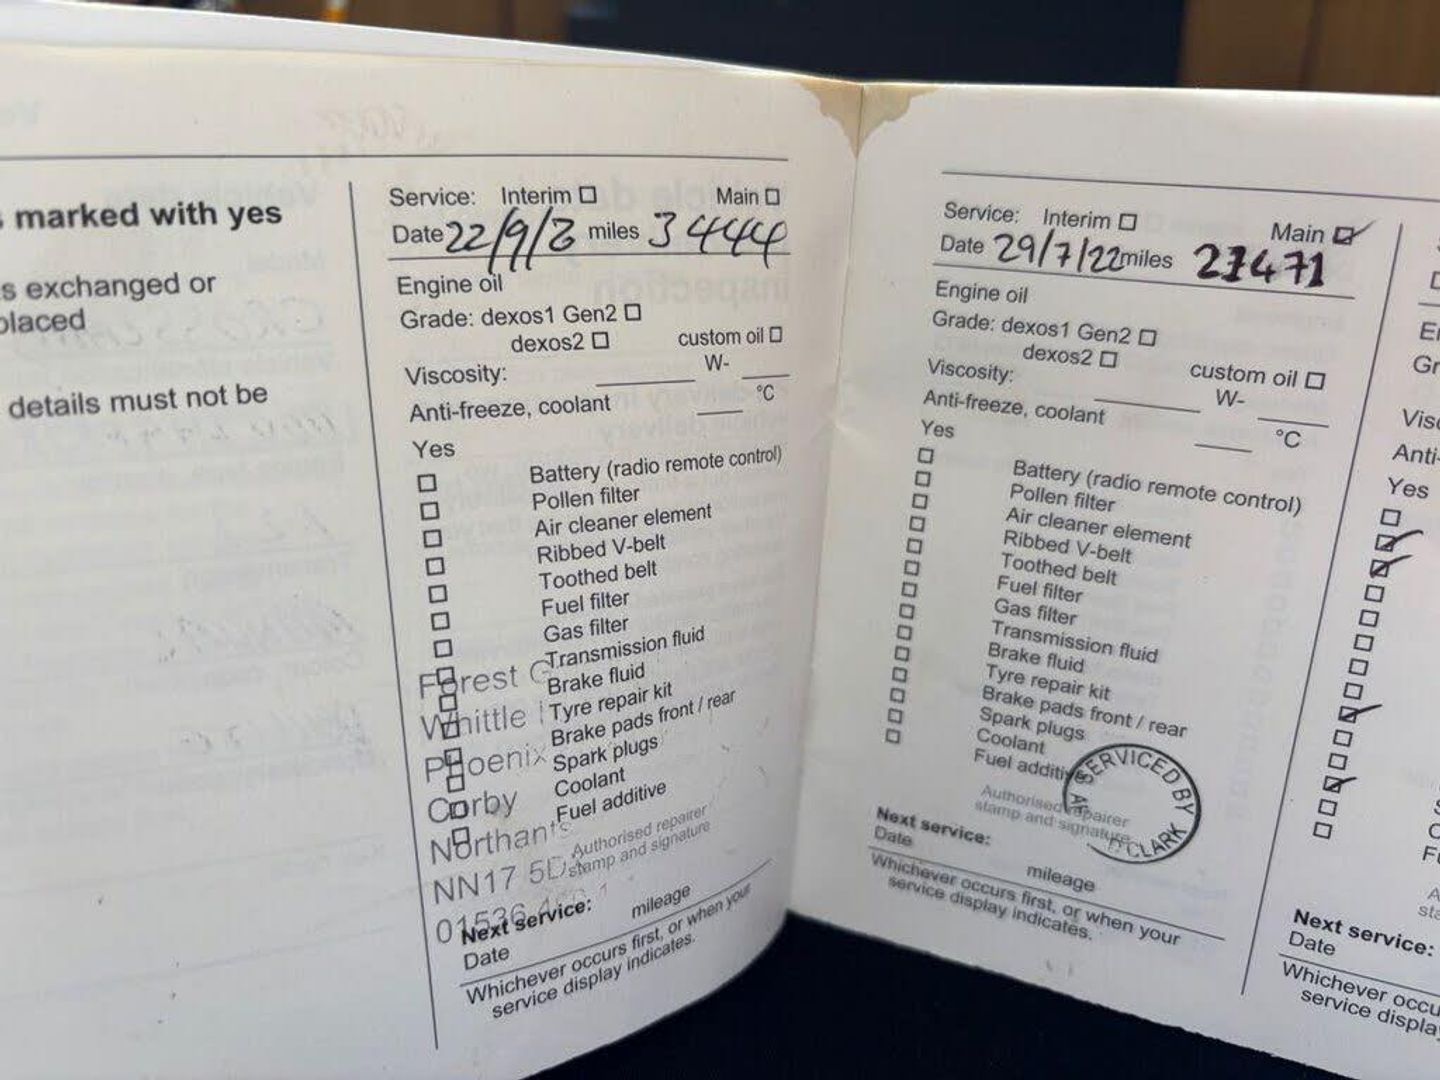 s marked with yes
s exchanged or
placed
details must not be
Service: Interim Main
Date 22/9/ miles 34444
Engine oil
Grade: dexos1 Gen2
dexos2 custom oil
Viscosity: W-
Anti-freeze, coolant °C
Yes
Battery (radio remote control)
Pollen filter
Air cleaner element
Ribbed V-belt
Toothed belt
Fuel filter
Gas filter
Transmission fluid
Brake fluid
Tyre repair kit
Brake pads front / rear
Spark plugs
Coolant
Fuel additive
Forest G
Whittle
Phoenix
Corby
Northants
NN17 5D
01536
Authorised repairer
stamp and signature
Next service:
Date mileage
Whichever occurs first, or when your
service display indicates.
Service: Interim Main
Date 29/7/22 miles 27471
Engine oil
Grade: dexos1 Gen2
dexos2 custom oil
Viscosity: W-
Anti-freeze, coolant °C
Yes
Battery (radio remote control)
Pollen filter
Air cleaner element
Ribbed V-belt
Toothed belt
Fuel filter
Gas filter
Transmission fluid
Brake fluid
Tyre repair kit
Brake pads front / rear
Spark plugs
Coolant
Fuel additive
SERVICED BY
CLARK
Authorised repairer
stamp and signature
Next service:
Date mileage
Whichever occurs first, or when your
service display indicates.
Gr
Visc
Anti-
Yes
Next service:
Date
Whichever occu
service displa